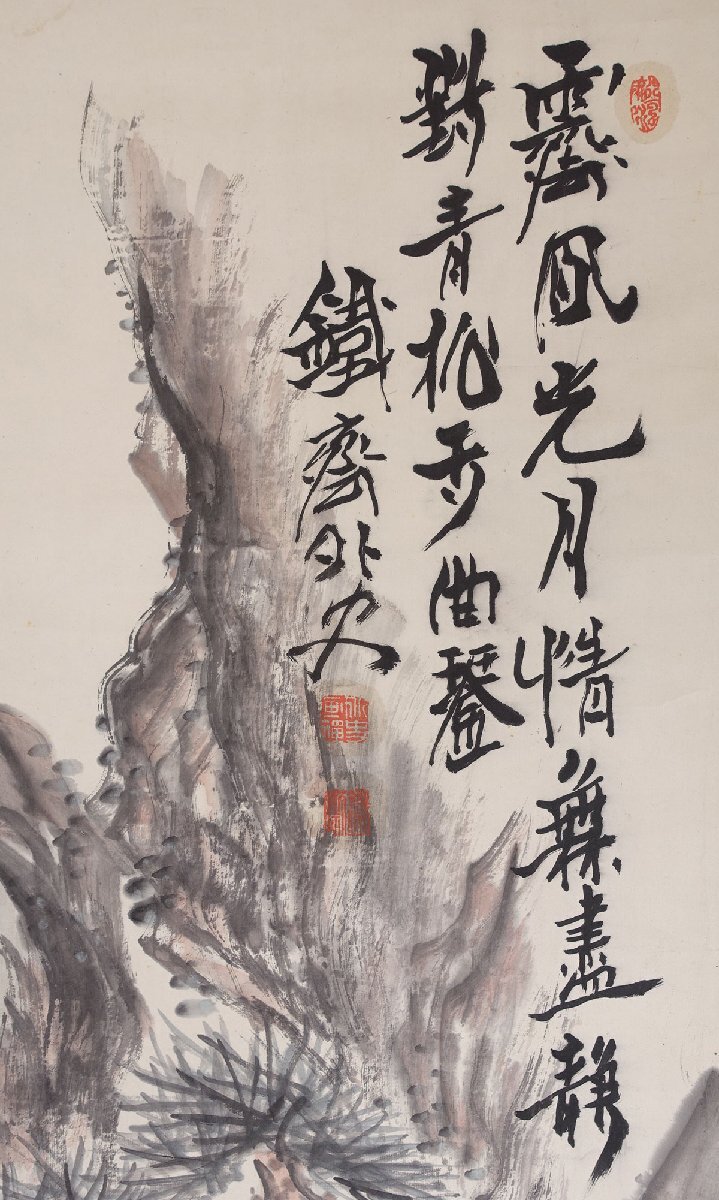 霽風光月情無盡靜
對青松曲
鐵齋外史